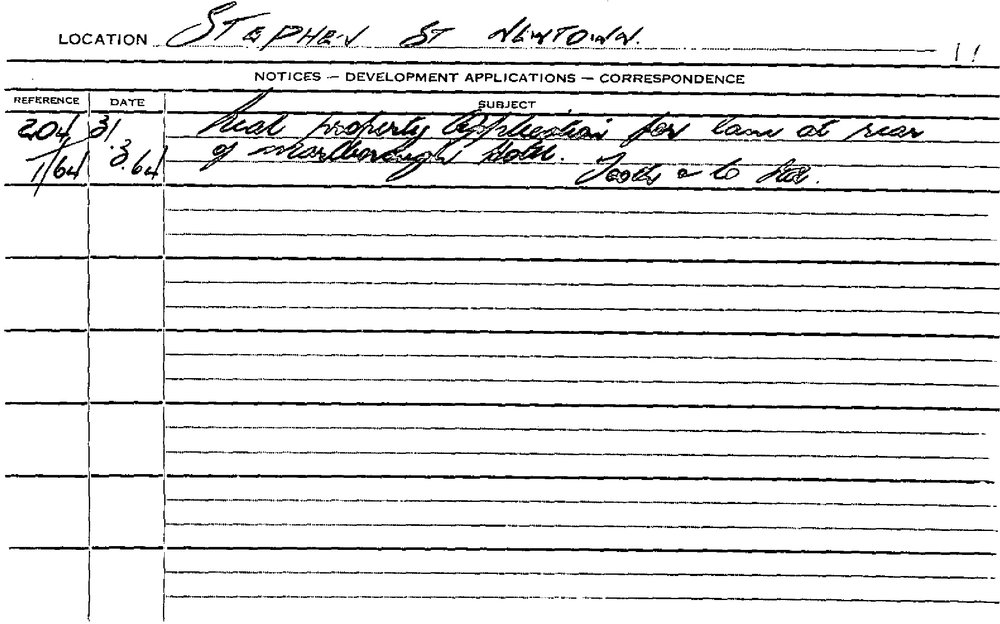 LOCATION STEPHEN ST NEWTOWN. 11
NOTICES — DEVELOPMENT APPLICATIONS — CORRESPONDENCE
REFERENCE DATE SUBJECT
204/ 31 Real property Application for land at rear
1/64 .3.64 of Marlborough Hotel.
Tooths & Co Ltd.